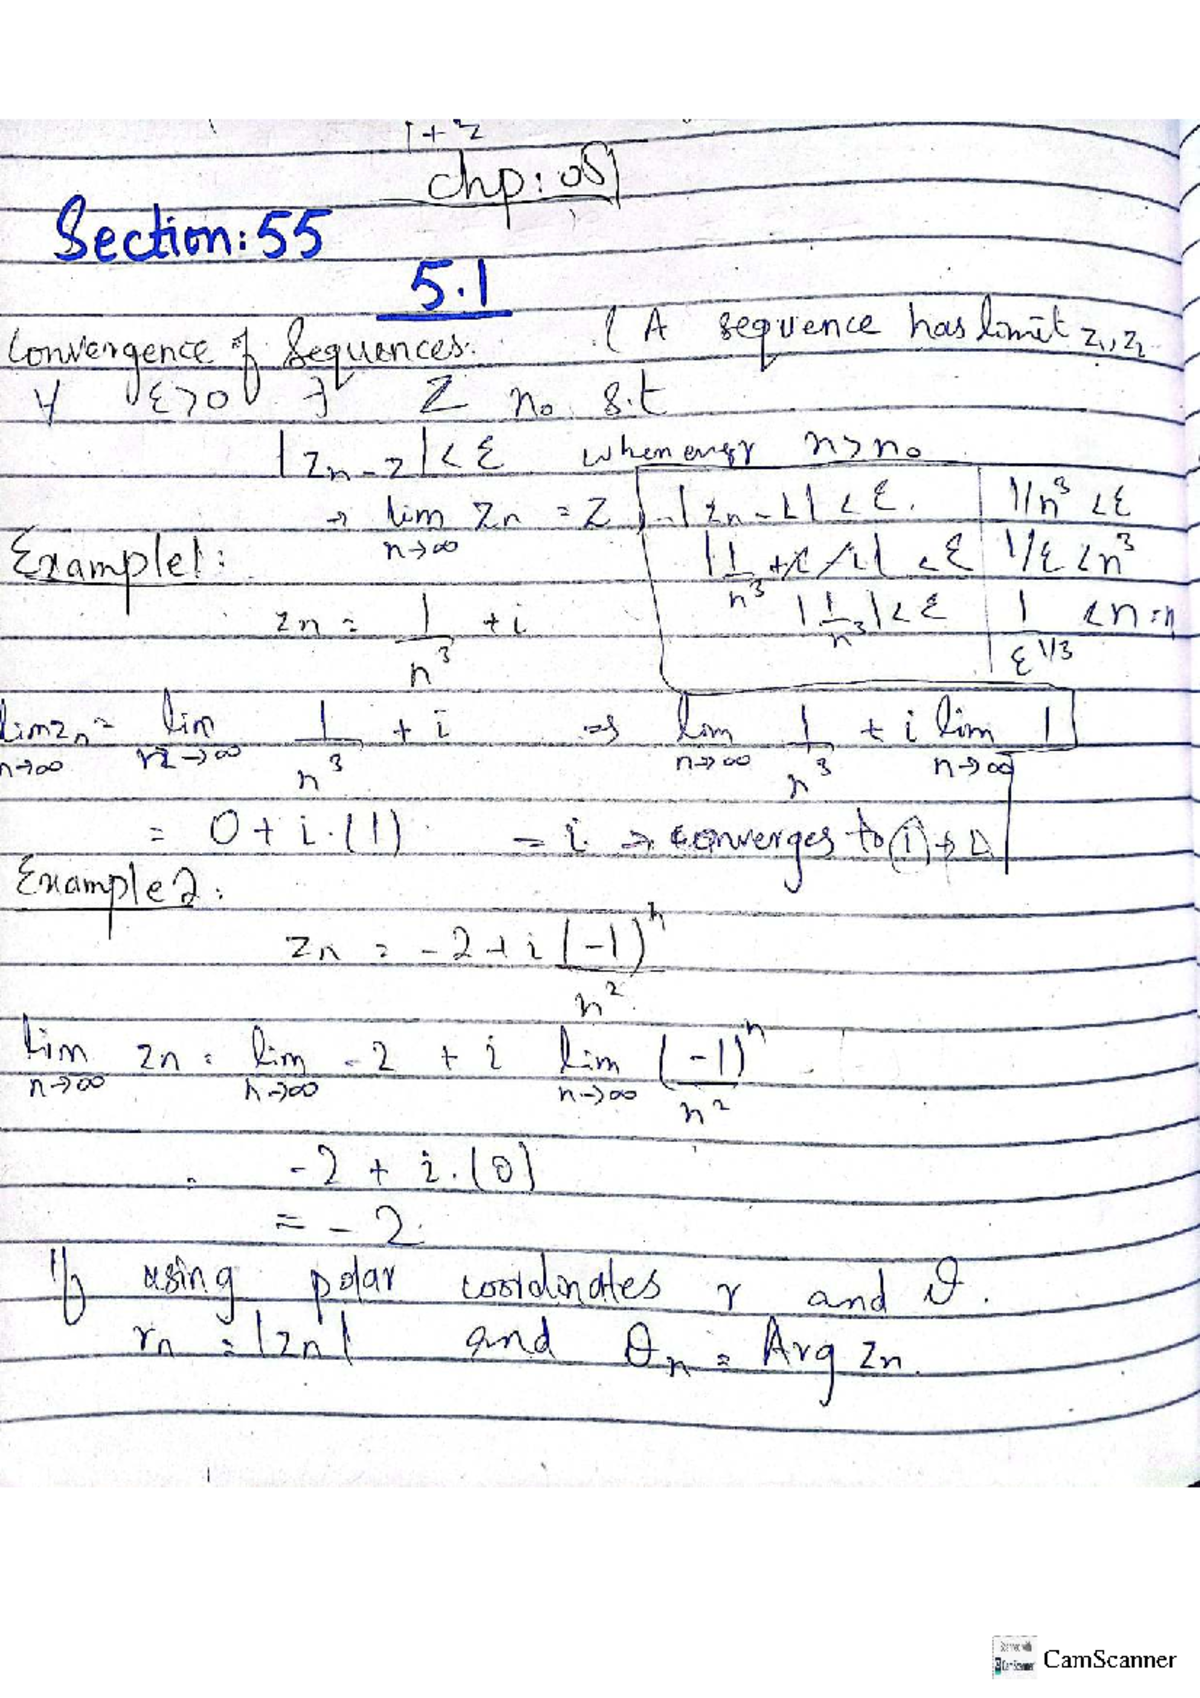 1+z
chp: 05
Section: 55
5.1
Convergence of Sequences. ( A sequence has limit z₁, z₂
∀ ε>0 ∃ Z n₀ s.t
|zn - z| < ε whenever n>n₀
→ lim n→∞ zn = z
|zn - L| < ε.
|1/n³ + i - i| < ε
|1/n³| < ε
1/n³ < ε
1/ε < n³
1/ε^1/3 < n =
Example 1:
zn = 1/n³ + i
lim n→∞ zn = lim n→∞ 1/n³ + i ⇒ lim n→∞ 1/n³ + i lim n→∞ 1
= 0 + i.(1) = i → converges to i → L
Example 2:
zn = -2 + i (-1)ⁿ/n²
lim n→∞ zn = lim n→∞ -2 + i lim n→∞ (-1)ⁿ/n²
-2 + i.(0)
= -2.
If using polar coordinates r and θ.
rn = |zn| and θn = Arg zn.
Scanned with
CamScanner
CamScanner